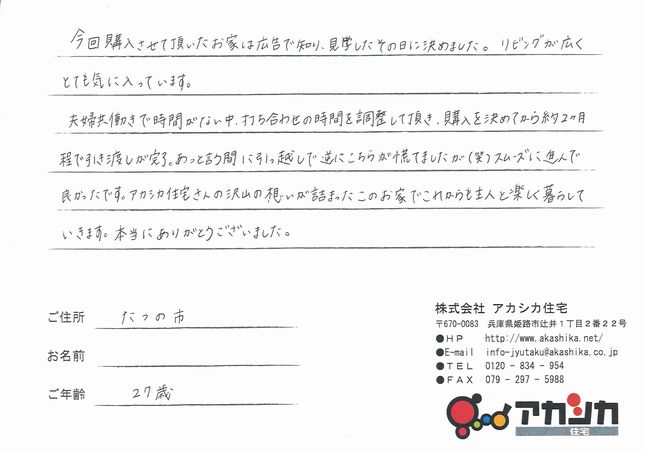 今回購入させて頂いたお家は広告で知り、見学したその日に決めました。リビングが広く
とても気に入っています。
夫婦共働きで時間がない中、打ち合わせの時間を調整して頂き、購入を決めてから約2ヶ月
程で引き渡しが完了。あっと言う間に引っ越しで逆にこちらが慌てましたが(笑)スムーズに進んで
良かったです。アカシカ住宅さんの沢山の想いが詰まったこのお家でこれからも主人と楽しく暮らして
いきます。本当にありがとうございました。
ご住所 たつの市
お名前
ご年齢 27歳
株式会社 アカシカ住宅
〒670-0083 兵庫県姫路市辻井1丁目2番22号
●HP http://www.akashika.net/
●E-mail info-jyutaku@akashika.co.jp
●TEL 0120-834-954
●FAX 079-297-5988
アカシカ
住宅